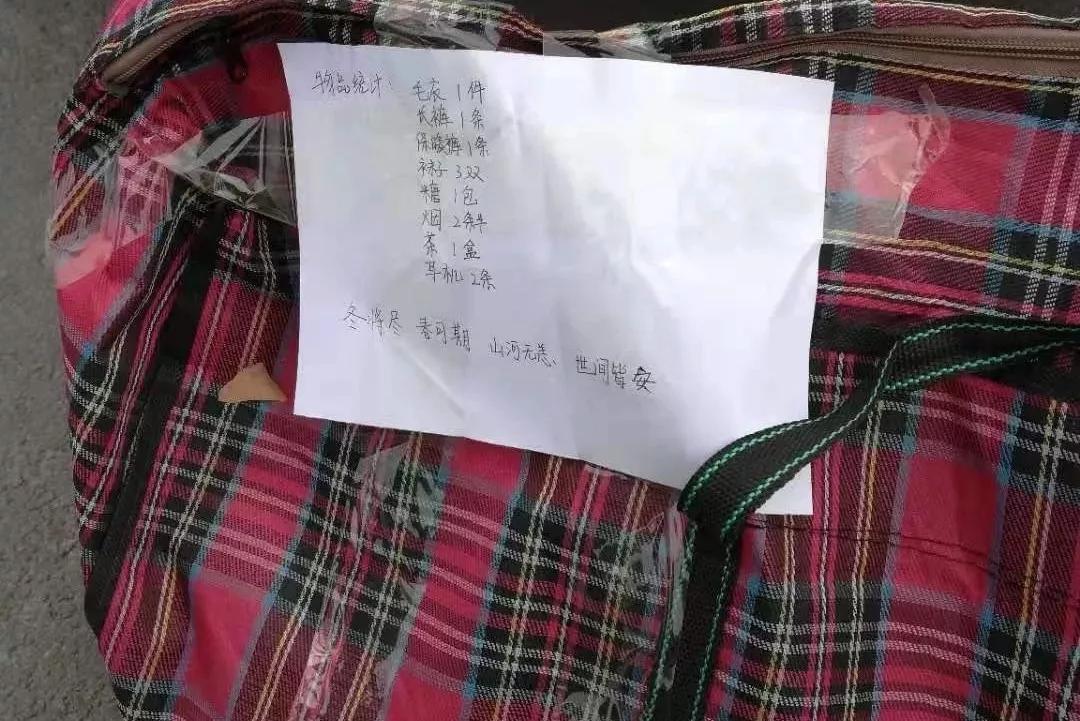 物品统计: 毛衣 1件
长裤 1条
保暖裤 1条
袜子 3双
糖 1包
烟 2条半
茶 1盒
耳机 2条
冬将尽 春可期 山河无恙、世间皆安